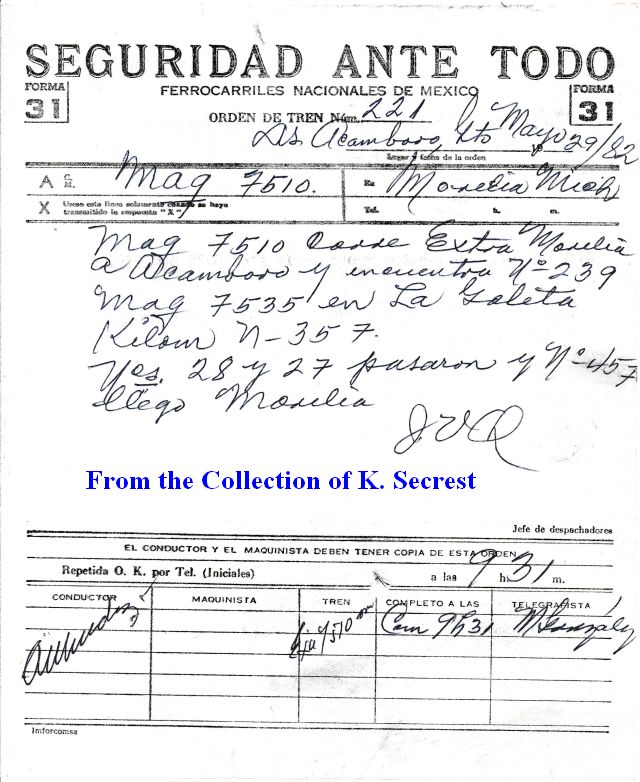 SEGURIDAD ANTE TODO
FORMA 31
FERROCARRILES NACIONALES DE MEXICO
FORMA 31
ORDEN DE TREN Núm. 221
Ds Acambaro, Gto Mayo 29/82
Lugar y fecha de la orden
A C. M. Maq 7510. En Morelia Mich
X Usese esta línea solamente cuando se haya transmitido la respuesta "X" Tel. h. m.
Maq 7510 Corre Extra Morelia
a Acambaro y encuentra Nº 239
Maq 7535 en La Goleta
Kilom N-357.
Nos. 28 y 27 pasaron y Nº 457
llego Morelia
JVR
From the Collection of K. Secrest
Jefe de despachadores
EL CONDUCTOR Y EL MAQUINISTA DEBEN TENER COPIA DE ESTA ORDEN
Repetida O. K. por Tel. (Iniciales) a las 9 h. 31 m.
CONDUCTOR MAQUINISTA TREN COMPLETO A LAS TELEGRAFISTA
7510 Com 9h31 M González
Imforcomsa